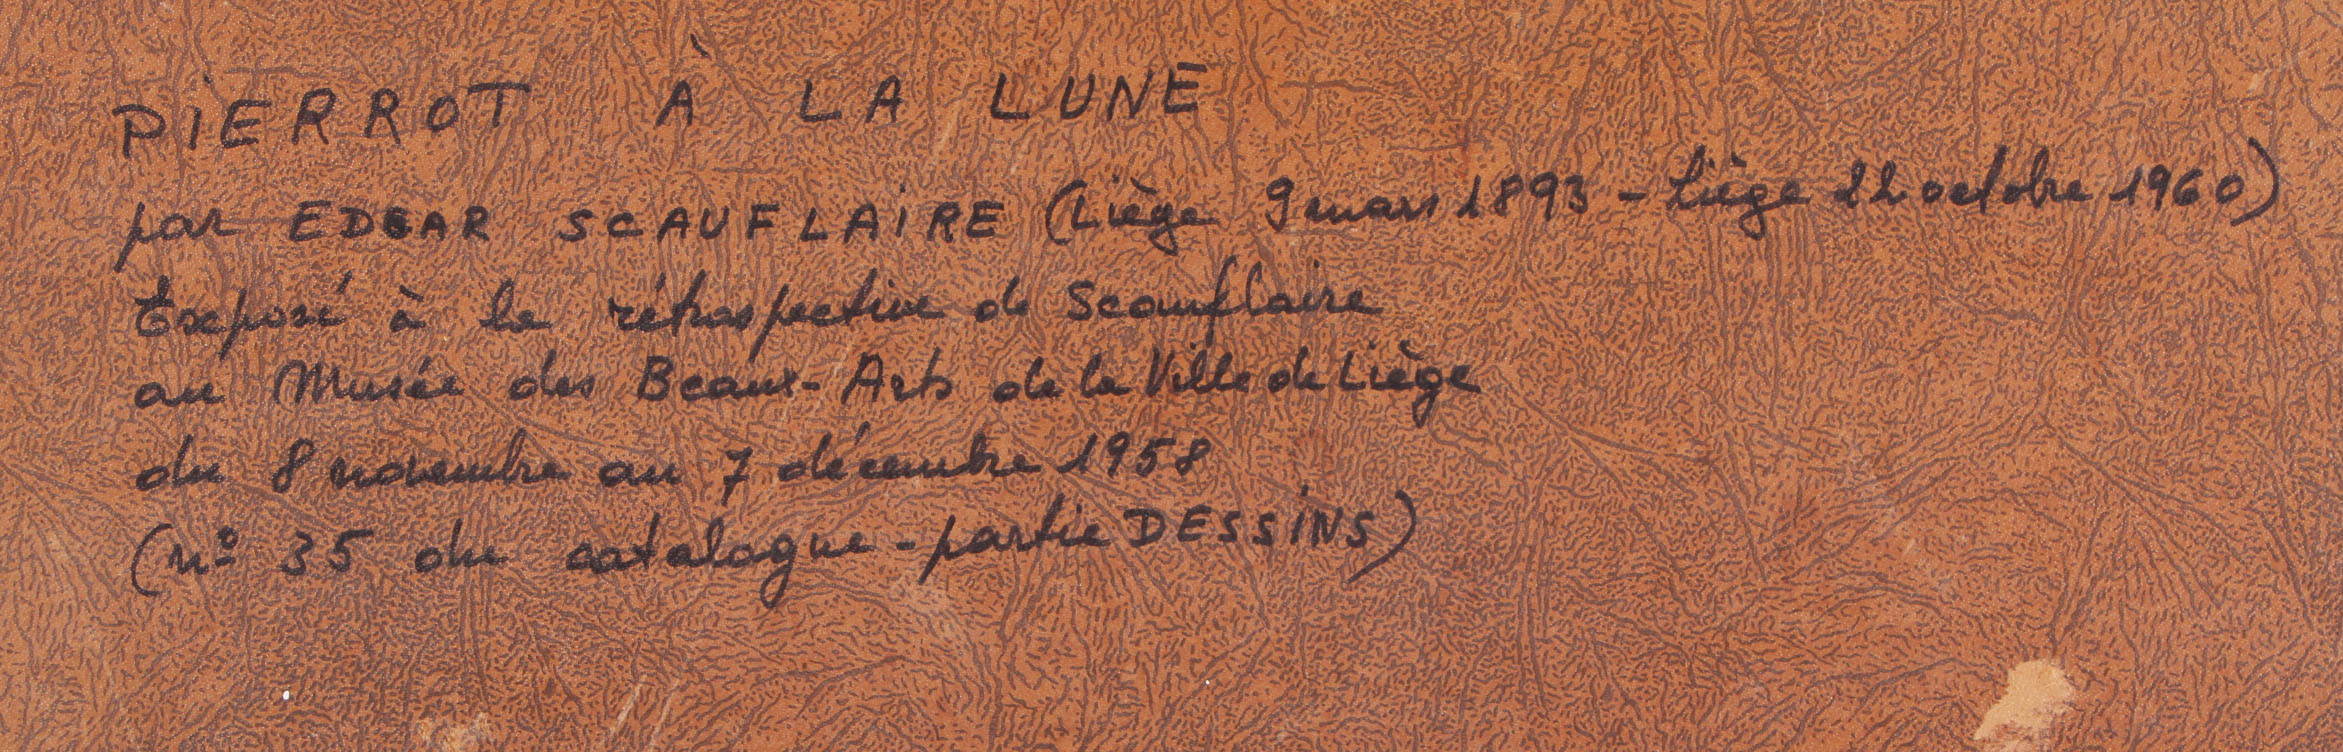 PIERROT À LA LUNE
par EDGAR SCAUFLAIRE (Liège 9 mars 1893 - Liège 22 octobre 1960)
Exposé à la rétrospective de Scauflaire
au Musée des Beaux-Arts de la Ville de Liège
du 8 novembre au 7 décembre 1958
(nº 35 du catalogue - partie DESSINS)